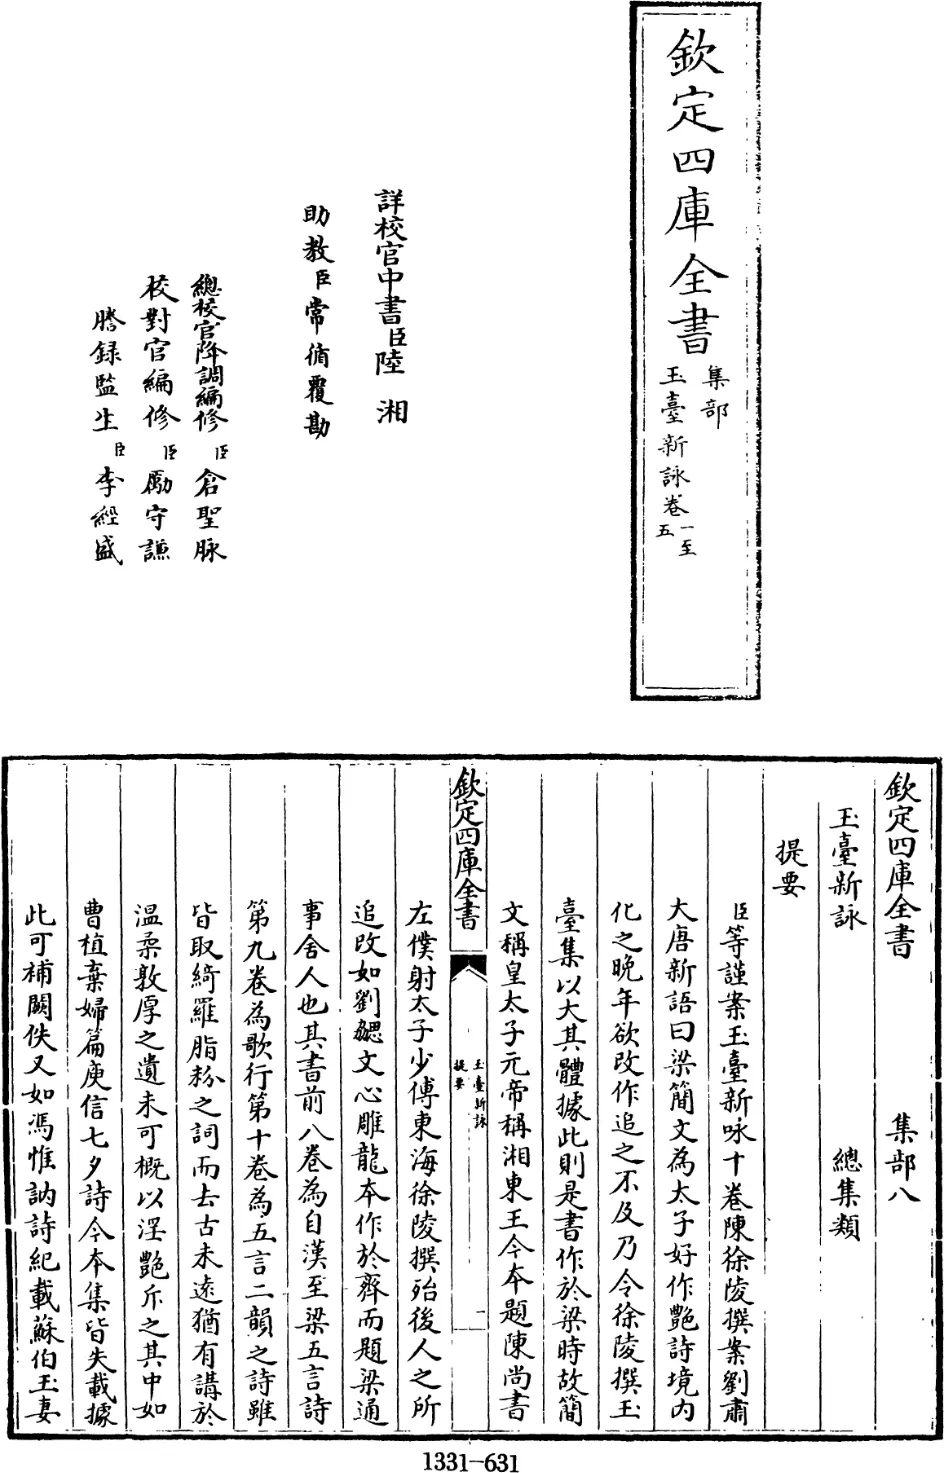 欽定四庫全書
集部
玉臺新詠卷一至五
詳校官中書臣陸湘
助教臣常循覆勘
總校官降調編修臣倉聖脉
校對官編修臣勵守謙
謄録監生臣李經盛
欽定四庫全書 集部八
玉臺新詠 總集類
提要
臣等謹案玉臺新咏十卷陳徐陵撰案劉肅
大唐新語曰梁簡文為太子好作艷詩境内
化之晚年欲改作追之不及乃令徐陵撰玉
臺集以大其體據此則是書作於梁時故簡
文稱皇太子元帝稱湘東王今本題陳尚書
欽定四庫全書
玉臺新詠
提要
一
左僕射太子少傅東海徐陵撰殆後人之所
追改如劉勰文心雕龍本作於齊而題梁通
事舍人也其書前八卷為自漢至梁五言詩
第九卷為歌行第十卷為五言二韻之詩雖
皆取綺羅脂粉之詞而去古未遠猶有講於
温柔敦厚之遺未可概以淫艶斥之其中如
曹植棄婦篇庾信七夕詩今本集皆失載據
此可補闕佚又如馮惟訥詩紀載蘇伯玉妻
1331-631